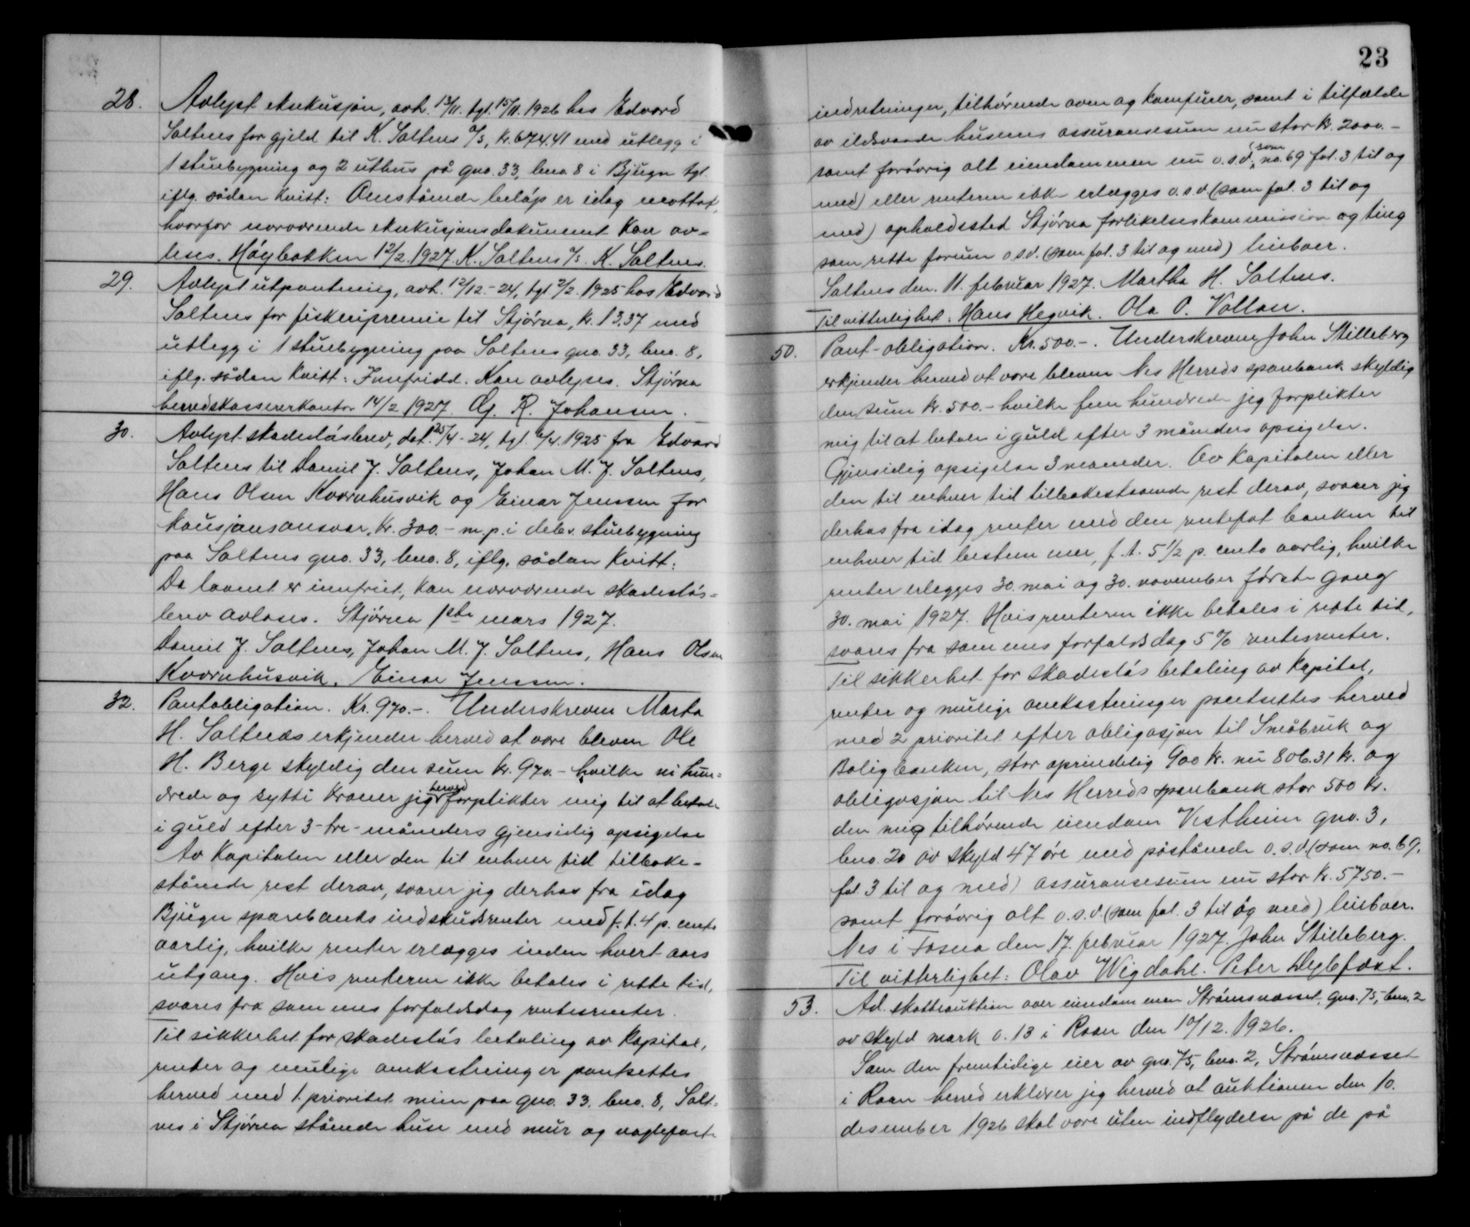 23
28. Avlyst eksekusjon, avh. 13/11. tgl. 15/11. 1926 hos Edvard
Saltnes for gjeld til K. Saltnes A/S, kr. 674.41 med utlegg i
1 stuebygning og 2 uthus på gno. 33, bno. 8 i Bjugn tgl.
iflg. sådan kvitt: Omstående beløp er idag mottat,
hvorfor nærværende eksekusjonsdokument kan av-
leses. Høybakken 12/2. 1927. K. Saltnes A/S. K. Saltnes.
29. Avlyst utpantning, avh. 12/12.-24, tgl. 2/2. 1925 hos Edvard
Saltnes for fiskeripremie til Stjørna, kr. 13.37 med
utlegg i 1 stuebygning paa Saltnes gno. 33, bno. 8,
iflg. sådan kvitt: Innfridd. Kan avlyses. Stjørna
herredskassererkontor 14/2 1927. Og. R. Johansen.
30. Avlyst skadesløsbrev, dat. 25/4-24, tgl. 6/4. 1925 fra Edvard
Saltnes til Daniel J. Saltnes, Johan M. J. Saltnes,
Hans Olsen Kvernhusvik og Einar Jenssen for
kausjonsansvar, kr. 300.- m. p. i debs. stuebygning
paa Saltnes gno. 33, bno. 8, iflg. sådan kvitt:
Da laanet er innfriet, kan nærværende skadesløs-
brev avlæses. Stjørna 1ste mars 1927.
Daniel J. Saltnes, Johan M. J. Saltnes, Hans Olsen
Kvernhusvik. Einar Jenssen.
32. Pantobligation. Kr. 970.-. Underskreven Marta
H. Saltnes erkjender herved at være bleven Ole
H. Berge skyldig den sum kr. 970.- hvilke ni hun-
drede og sytti kroner jeg herved forplikter mig til at betale
i guld efter 3-tre-måneders gjensidig opsigelse
Av kapitalen eller den til enhver tid tilbake-
stående rest derav, svarer jeg derhos fra idag
Bjugn sparebanks indskudsrenter med f. t. 4 p. cents
aarlig, hvilke renter erlægges inden hvert aars
utgang. Hvis renterne ikke betales i rette tid,
svares fra sammes forfaldsdag rentesrenter.
Til sikkerhet for skadesløs betaling av kapital,
renter og mulige omkostninger pantsettes
herved med 1 prioritet min paa gno. 33, bno. 8, Salt-
nes i Stjørna stående huse med mur og naglefaste
indretninger, tilhørende ovne og komfurer, samt i tilfælde
av ildsvaade husenes assuransesum nu stor kr. 2000.-
samt forøvrig alt eiendommen nu o.s.v. (som no. 69 fol. 3 til og
med) eller renterne ikke erlægges o.s.v. (som fol. 3 til og
med) opholdssted Stjørna forlikelseskommission og ting
som rette forum o.s.v. (som fol. 3 til og med) heibaer.
Saltnes den 11. februar 1927. Martha H. Saltnes.
Til vitterlighet: Hans Hegvik. Ola O. Vollan.
50. Pant-obligation. Kr. 500.-. Underskreven John Stilleberg
erkjender herved at være bleven Nes Herreds sparebank skyldig
den sum kr. 500.- hvilke fem hundrede jeg forplikter
mig til at betale i guld efter 3 måneders opsigelse.
Gjensidig opsigelse 3 maaneder. Av kapitalen eller
den til enhver tid tilbakestaaende rest derav, svarer jeg
derhos fra idag renter med den rentefot banken til
enhver tid bestemmer, f. t. 5 1/2 p. cento aarlig, hvilke
renter erlegges 30. mai og 30. november første gang
30. mai 1927. Hvis renterne ikke betales i rette tid,
svares fra sammes forfaldsdag 5% rentesrenter.
Til sikkerhet for skadesløs betaling av kapital,
renter og mulige omkostninger pantsettes herved
med 2 prioritet efter obligasjon til Småbruk og
Boligbanken, stor oprindelig 900 kr. nu 806.31 kr. og
obligasjon til Nes Herreds sparebank stor 500 kr.
den mig tilhørende eiendom Vestheim gno. 3,
bno. 20 av skyld 47 øre med påstående o.s.v. (som no. 69,
fol. 3 til og med) assuransesum nu stor kr. 5750.-
samt forøvrig alt o.s.v. (som fol. 3 til og med) heibaer.
Nes i Fosna den 17. februar 1927. John Stilleberg.
Til vitterlighet: Olav Wigdahl. Peter Dybfæst.
53. Ad. skatteauktion over eiendommen Strømsnesset, gno. 75, bno. 2
av skyld mark 0.13 i Roan den 10/12. 1926.
Som den fremtidige eier av gno. 75, bno. 2, Strømsnesset
i Roan herred erklærer jeg herved at auktionen den 10.
desember 1926 skal være uten indflydelse på de på